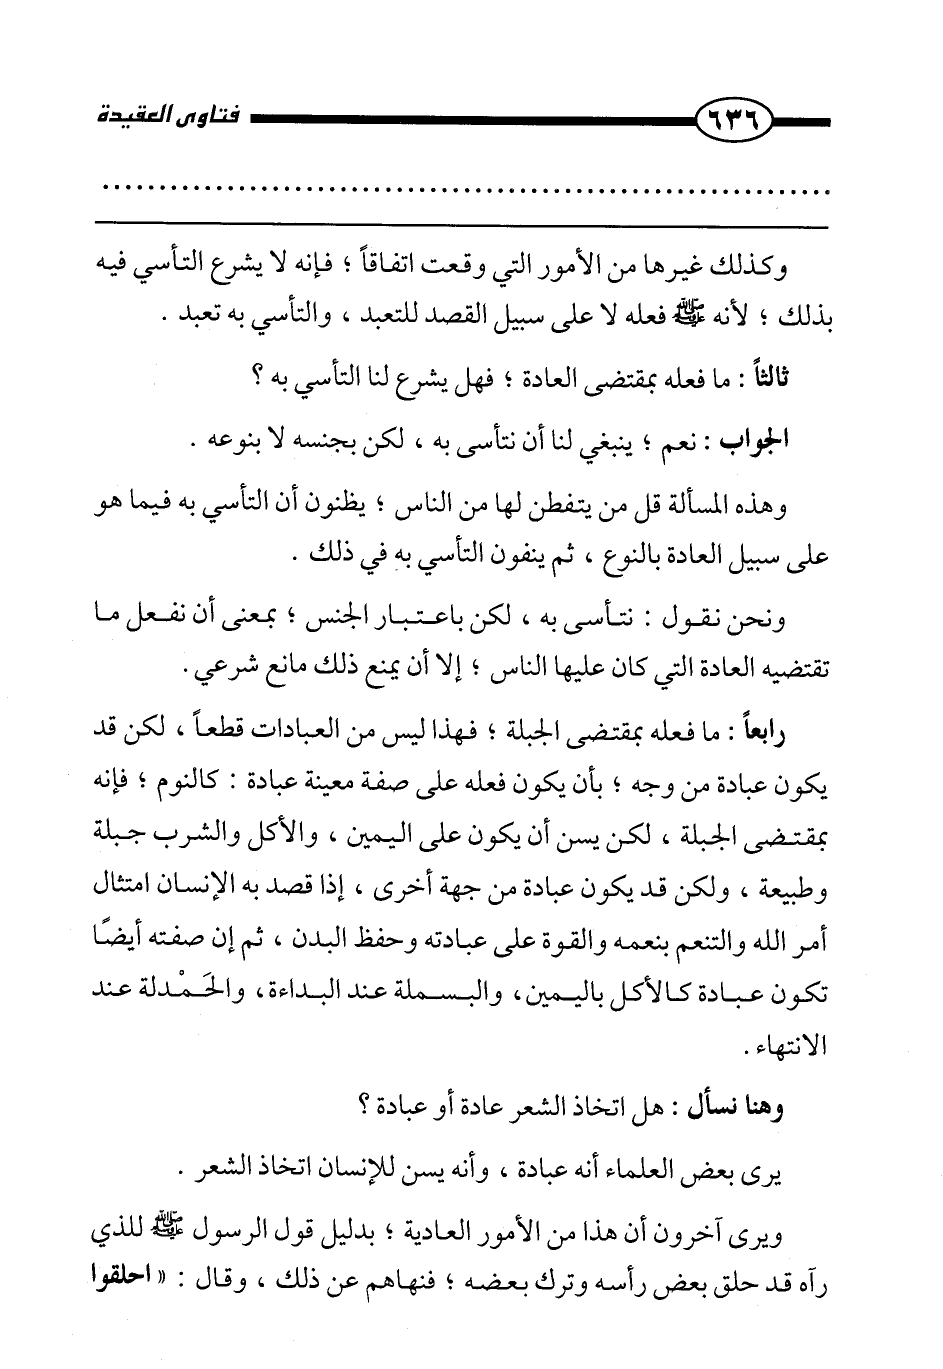 ٦٣٦ فتاوى العقيدة
..........................................................................
وكذلك غيرها من الأمور التي وقعت اتفاقاً ؛ فإنه لا يشرع التأسي فيه
بذلك ؛ لأنه ﷺ فعله لا على سبيل القصد للتعبد ، والتأسي به تعبد .
ثالثاً : ما فعله بمقتضى العادة ؛ فهل يشرع لنا التأسي به ؟
الجواب : نعم ؛ ينبغي لنا أن نتأسى به ، لكن بجنسه لا بنوعه .
وهذه المسألة قل من يتفطن لها من الناس ؛ يظنون أن التأسي به فيما هو
على سبيل العادة بالنوع ، ثم ينفون التأسي به في ذلك .
ونحن نقول : نتأسى به ، لكن باعتبار الجنس ؛ بمعنى أن نفعل ما
تقتضيه العادة التي كان عليها الناس ؛ إلا أن يمنع ذلك مانع شرعي .
رابعاً : ما فعله بمقتضى الجبلة ؛ فهذا ليس من العبادات قطعاً ، لكن قد
يكون عبادة من وجه ؛ بأن يكون فعله على صفة معينة عبادة : كالنوم ؛ فإنه
بمقتضى الجبلة ، لكن يسن أن يكون على اليمين ، والأكل والشرب جبلة
وطبيعة ، ولكن قد يكون عبادة من جهة أخرى ، إذا قصد به الإنسان امتثال
أمر الله والتنعم بنعمه والقوة على عبادته وحفظ البدن ، ثم إن صفته أيضًا
تكون عبادة كالأكل باليمين، والبسملة عند البداءة، والحَمْدلة عند
الانتهاء .
وهنا نسأل : هل اتخاذ الشعر عادة أو عبادة ؟
يرى بعض العلماء أنه عبادة ، وأنه يسن للإنسان اتخاذ الشعر .
ويرى آخرون أن هذا من الأمور العادية ؛ بدليل قول الرسول ﷺ للذي
رآه قد حلق بعض رأسه وترك بعضه ؛ فنهاهم عن ذلك ، وقال : « احلقوا